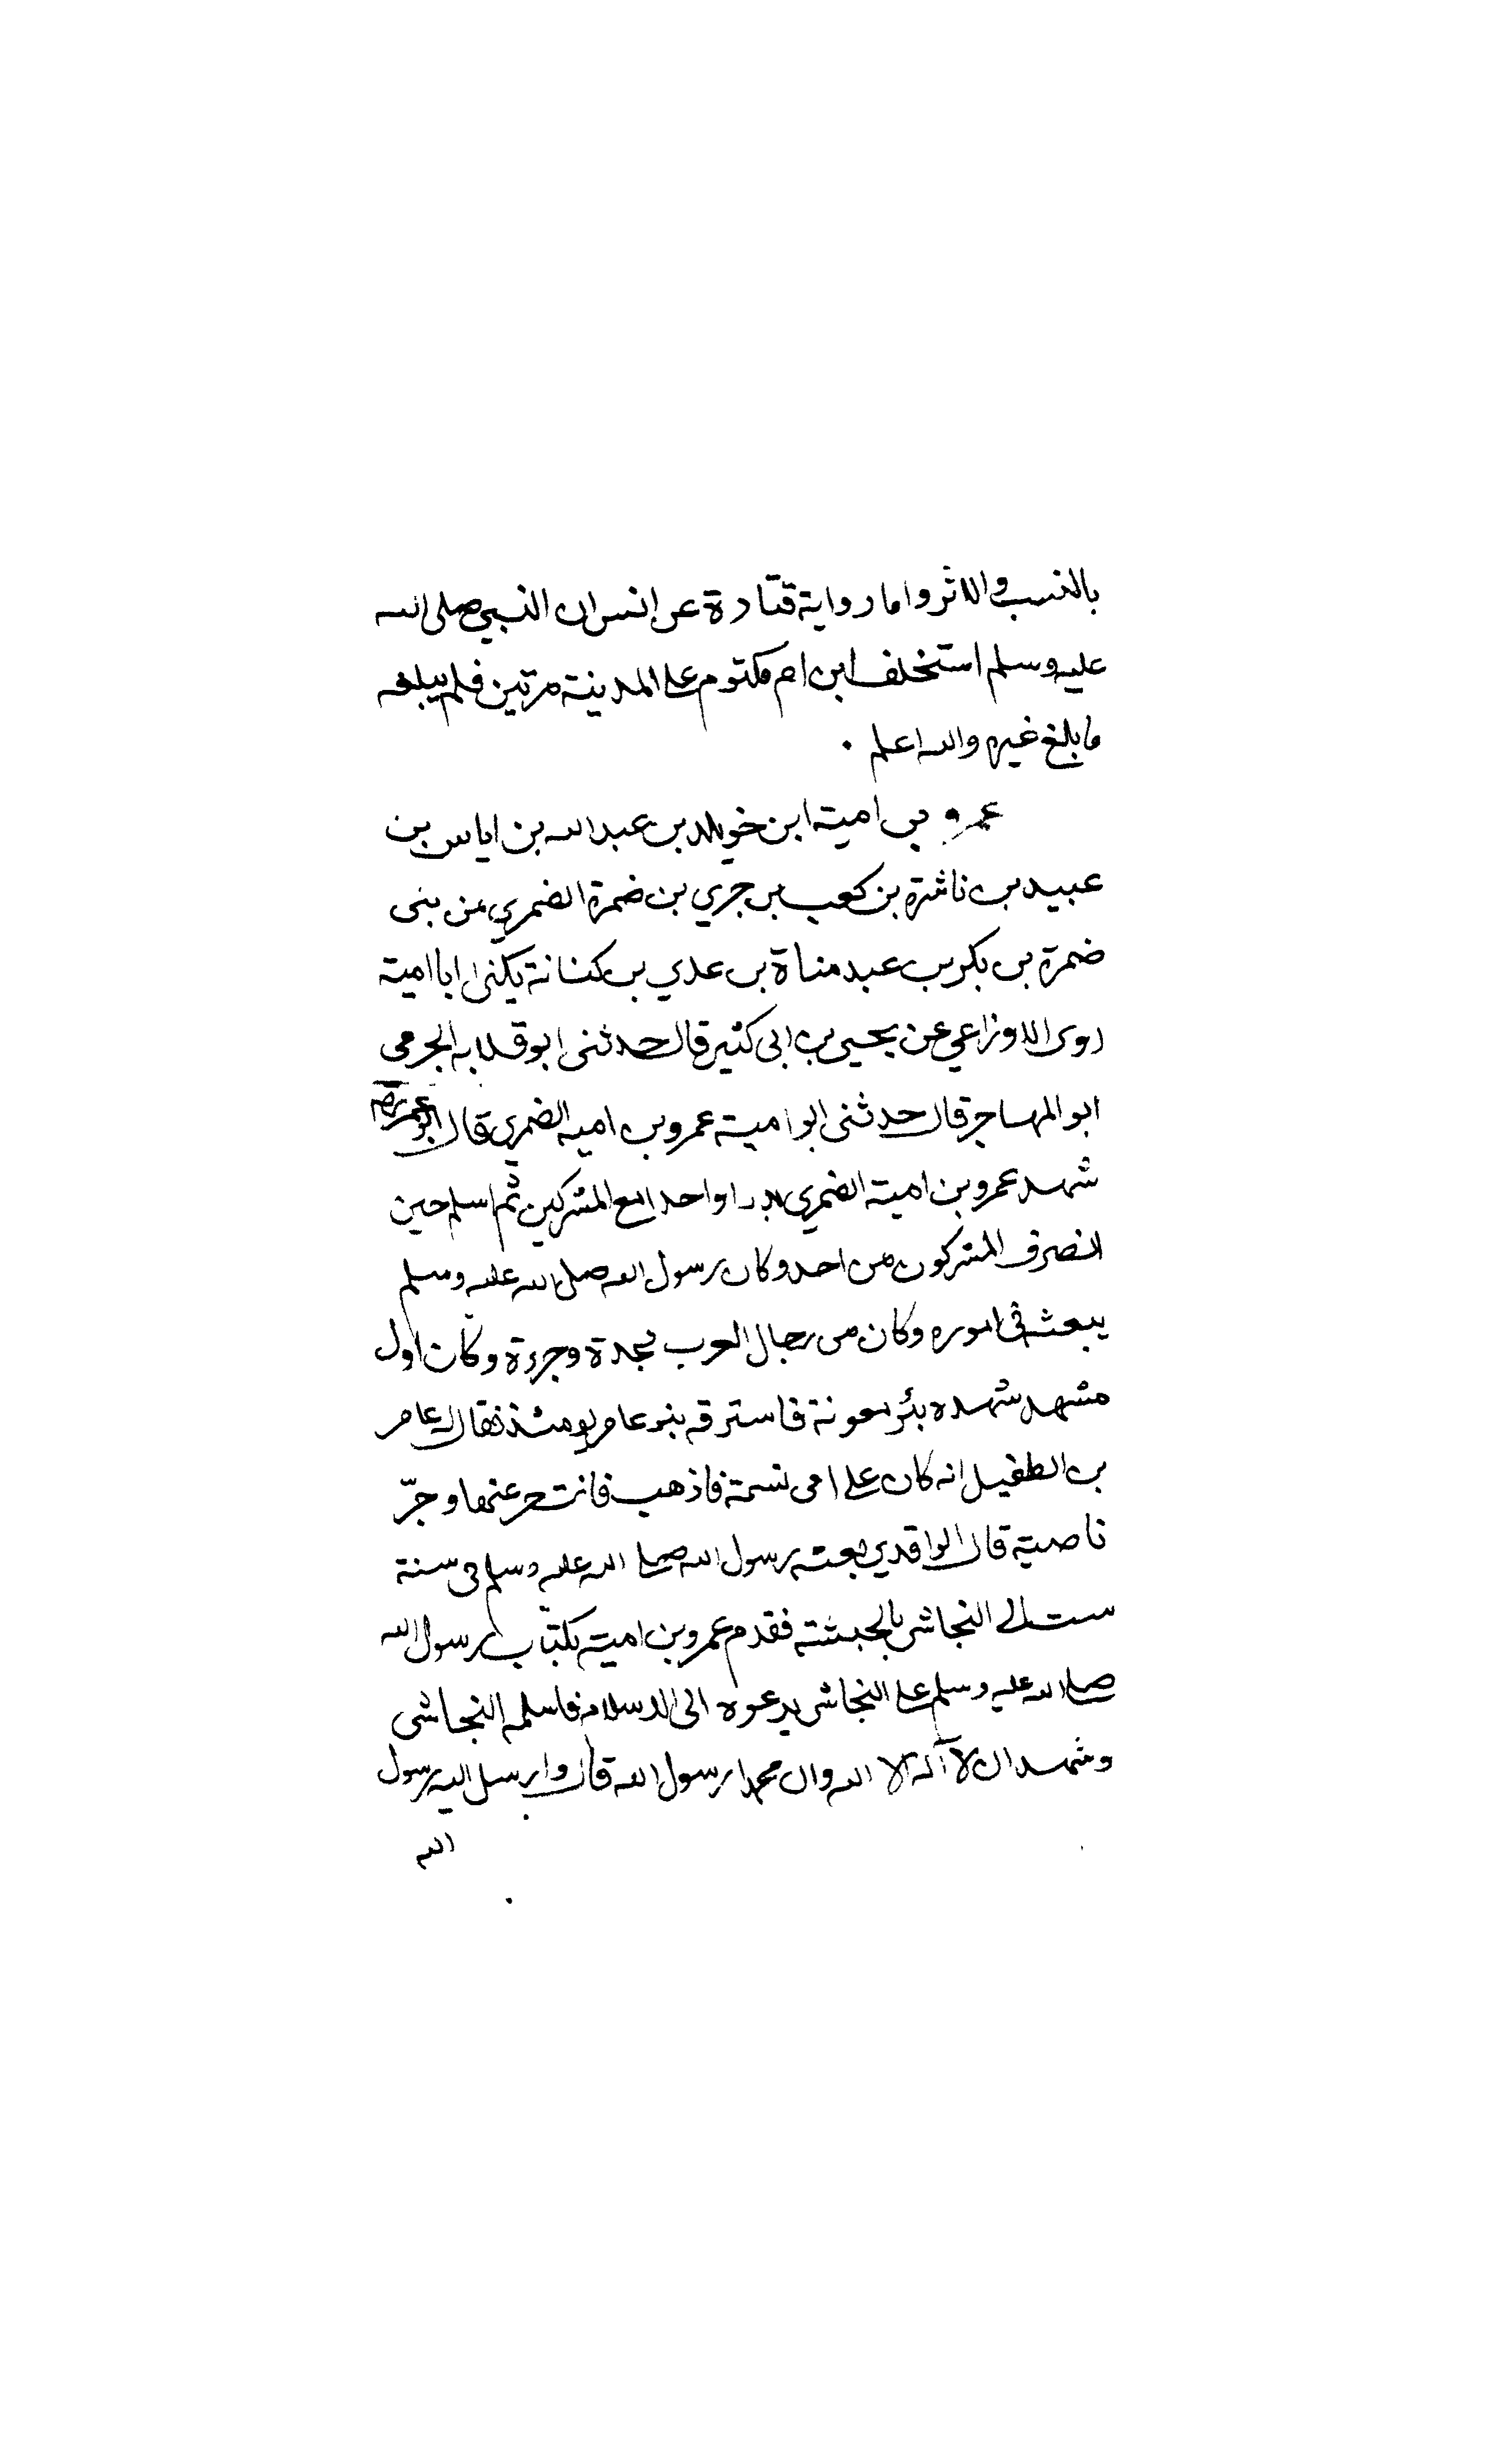 بالنسب والاثر واما رواية قتادة عن انس ان النبي صلى الله
عليه وسلم استخلف ابن ام مكتوم على المدينة مرتين فلم يبلغه
ما بلغ غيره والله اعلم .
عمرو بن امية ابن خويلد بن عبد الله بن اياس بن
عبيد بن ناشرة بن كعب بن جري بن ضمرة الضمري من بنى
ضمرة بن بكر بن عبد مناة بن عدي بن كنانة يكنى ابا امية
روى الاوزاعي عن يحيى بن ابى كثير قال حدثنى ابو قلابه الجرمى
ابو المهاجر قال حدثنى ابو امية عمرو بن اميه الضمري قال ابو عمر
شهد عمرو بن امية الضمري بدرا واحدا مع المشركين ثم اسلم حين
انصرف المشركون من احد وكان رسول الله صلى الله عليه وسلم
يبعثه فى اموره وكان من رجال العرب نجدة وجرءة وكان اول
مشهد شهده بئر معونة فاستر قه بنو عامر يومئذ فقال له عامر
بن الطفيل انه كان على امى نسمة فاذهب فانت حر عنها وجزّ
ناصيته قال الواقدي بعثه رسول الله صلى الله عليه وسلم فى سنة
ست الى النجاشى بالحبشة فقدم عمرو بن امية بكتاب رسول الله
صلى الله عليه وسلم على النجاشى يدعوه الى الاسلام فاسلم النجاشى
وشهد ان لا آله الا الله وان محمدا رسول الله قال وارسل اليه رسول
الله